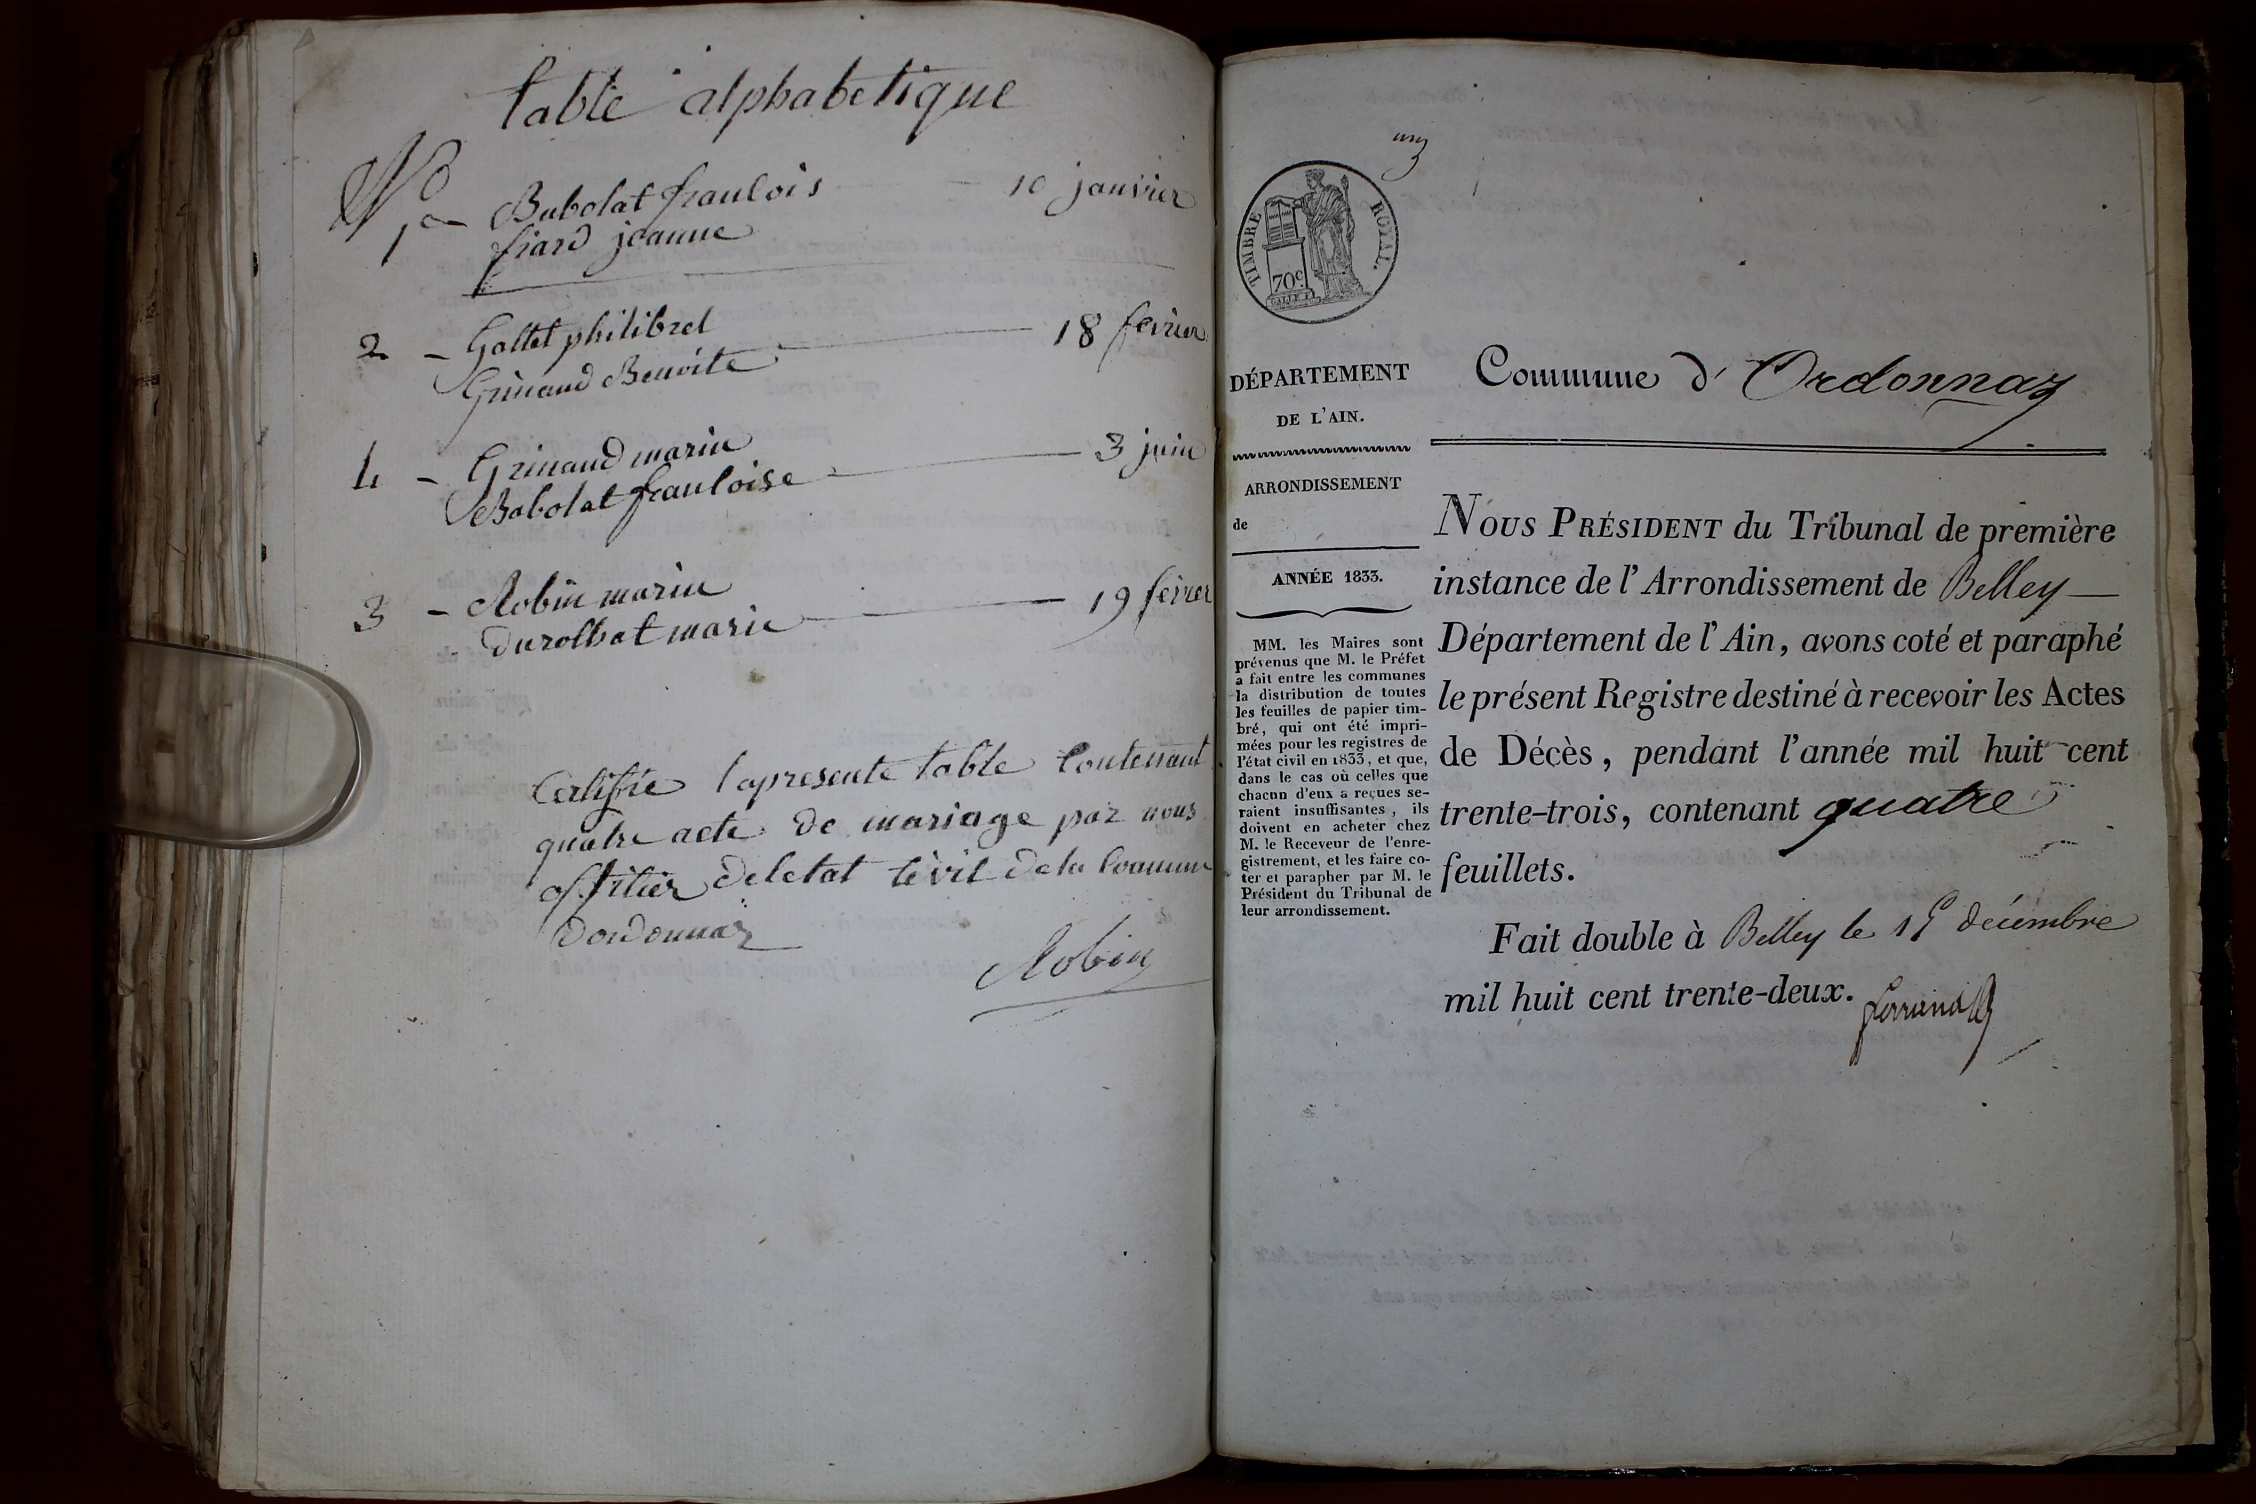 table alphabetique
No
1er Babolat franlois — 10 janvier
fiard jeanne
2 – Gottet philibret
Grinand Benoite — 18 fevrier
4 – Grinand marin
Babolat franloise — 3 juin
3 – Robin marin
Durolbat marie — 19 fevrier
Certifie lapresente table Contenant
quatre acte de mariage par nous
offitier deletat Civil dela Commune
dordonnaz
Robin
TIMBRE ROYAL.
70c
DÉPARTEMENT
DE L'AIN.
ARRONDISSEMENT
de
ANNÉE 1833.
MM. les Maires sont
prévenus que M. le Préfet
a fait entre les communes
la distribution de toutes
les feuilles de papier tim-
bré, qui ont été impri-
mées pour les registres de
l'état civil en 1833, et que,
dans le cas où celles que
chacun d'eux a reçues se-
raient insuffisantes, ils
doivent en acheter chez
M. le Receveur de l'enre-
gistrement, et les faire co-
ter et parapher par M. le
Président du Tribunal de
leur arrondissement.
Commune d' Ordonnaz
NOUS PRÉSIDENT du Tribunal de première
instance de l'Arrondissement de Belley —
Département de l'Ain, avons coté et paraphé
le présent Registre destiné à recevoir les Actes
de Décès, pendant l'année mil huit cent
trente-trois, contenant quatre
feuillets.
Fait double à Belley le décembre
mil huit cent trente-deux. Ferrand